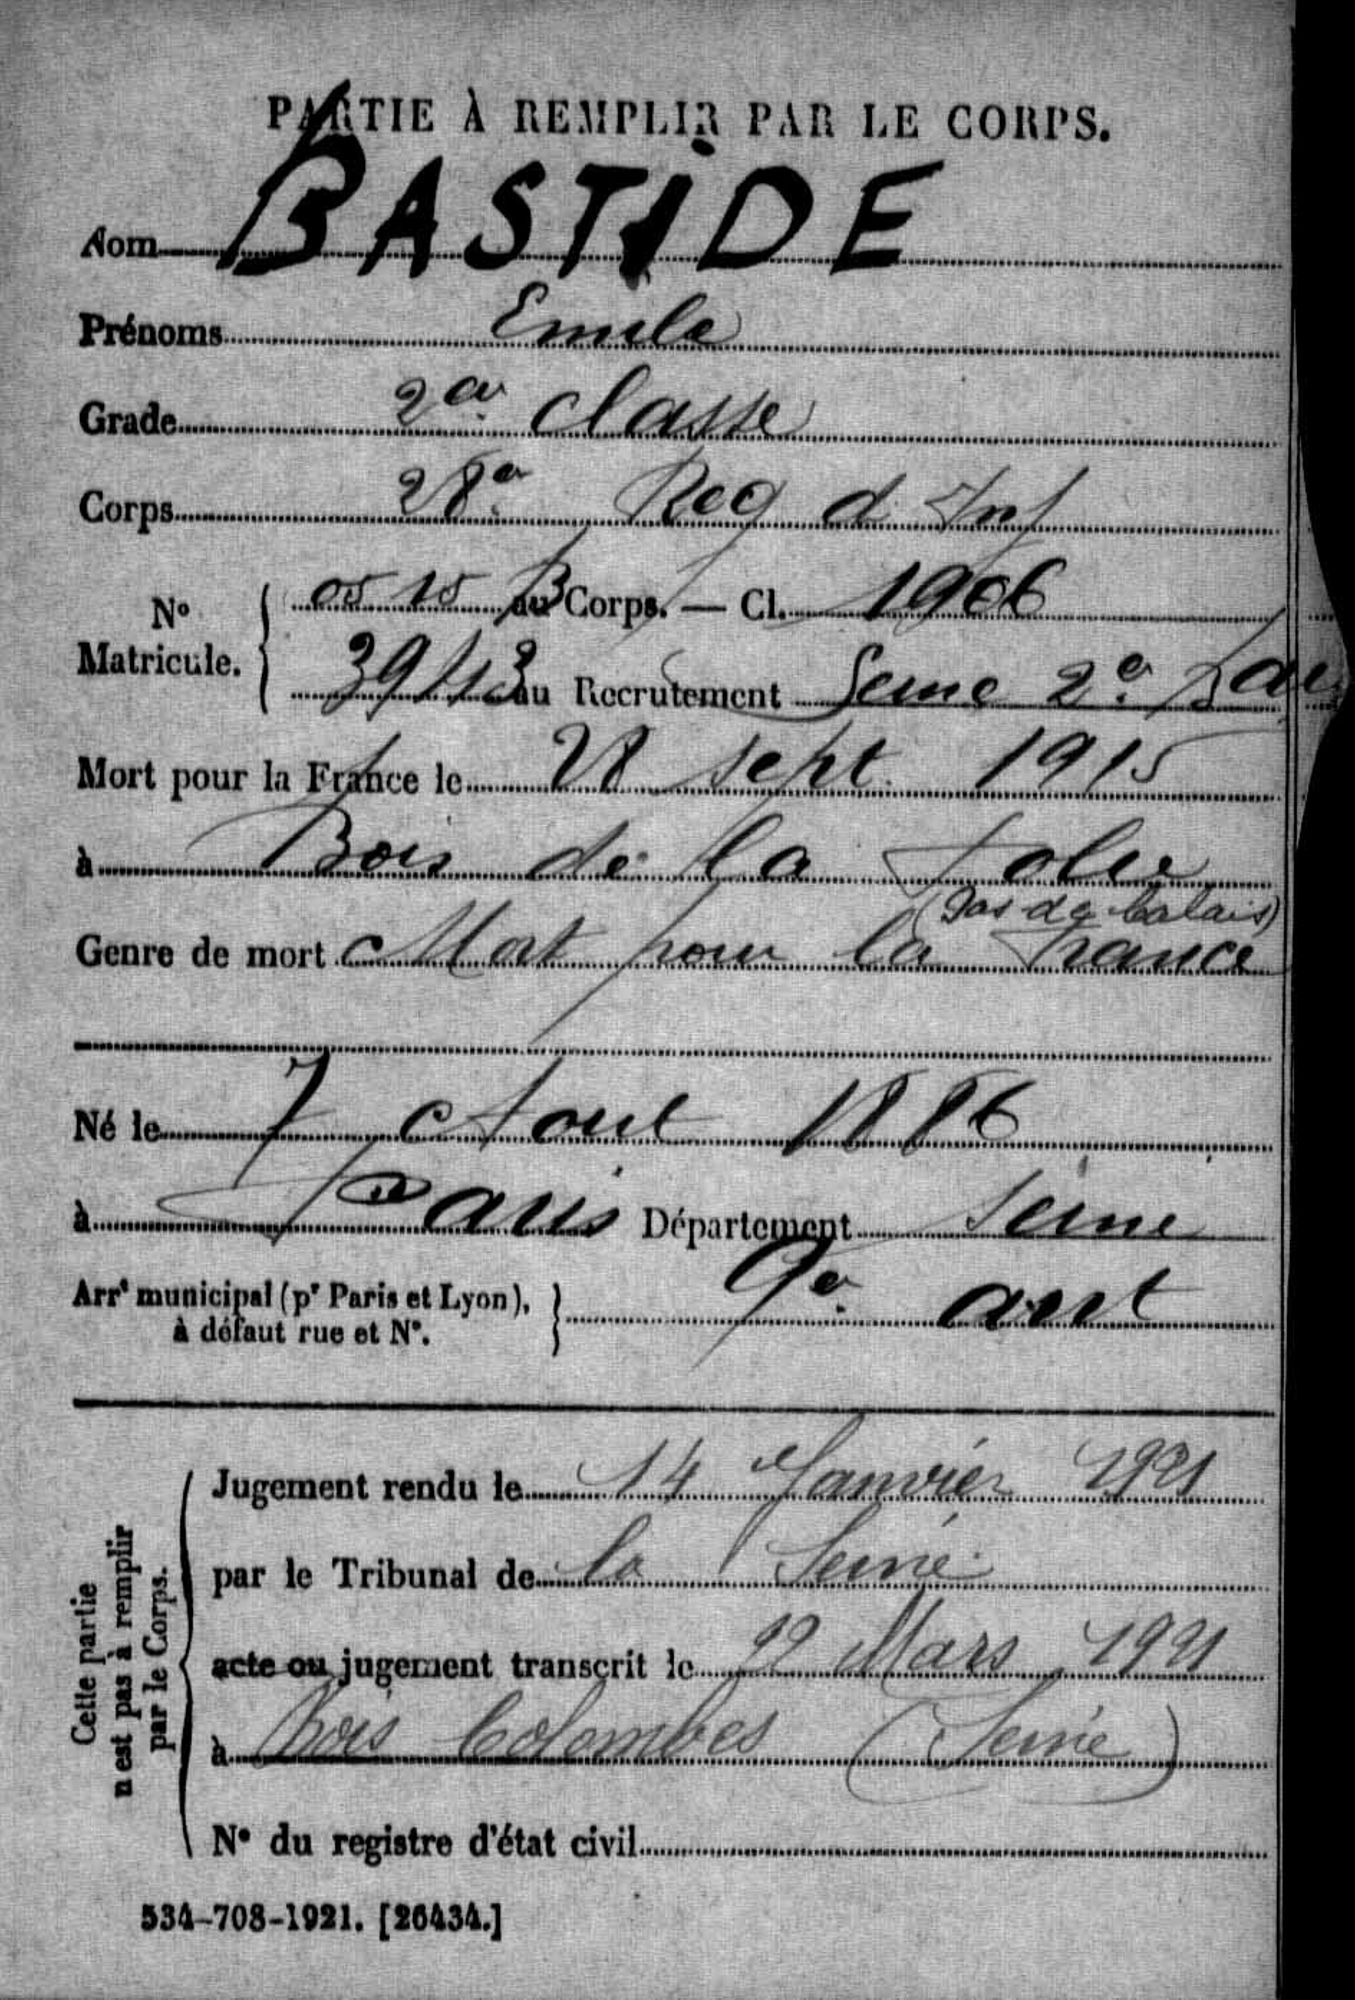 PARTIE À REMPLIR PAR LE CORPS.
Nom BASTIDE
Prénoms Emile
Grade 2e classe
Corps 28e Reg d Inf
N° Matricule. 05 15 au Corps. — Cl. 1906
3943 au Recrutement Seine 2e B
Mort pour la France le 28 sept. 1915
à Bois de la Folie
(Pas de Calais)
Genre de mort Mort pour la France
Né le 7 Aout 1886
à Paris Département Seine
Arrt municipal (pr Paris et Lyon), 9e arrt
à défaut rue et N°.
Cette partie
n'est pas à remplir
par le Corps.
Jugement rendu le 14 Janvier 1921
par le Tribunal de la Seine
acte ou jugement transcrit le 22 Mars 1921
à Bois Colombes (Seine)
N° du registre d'état civil
534-708-1921. [26434.]